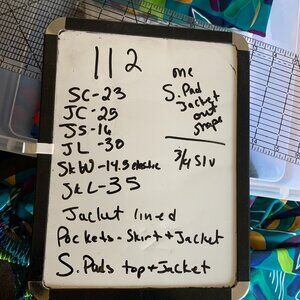 112
SC-23
JC-25
JS-16
JL-30
SkW-14.5 elastic
SkL-35
Jacket lined
Pockets-Skirt+Jacket
S. Pads top+Jacket
me
S. Pad
Jacket
out
snaps
3/4 Slv